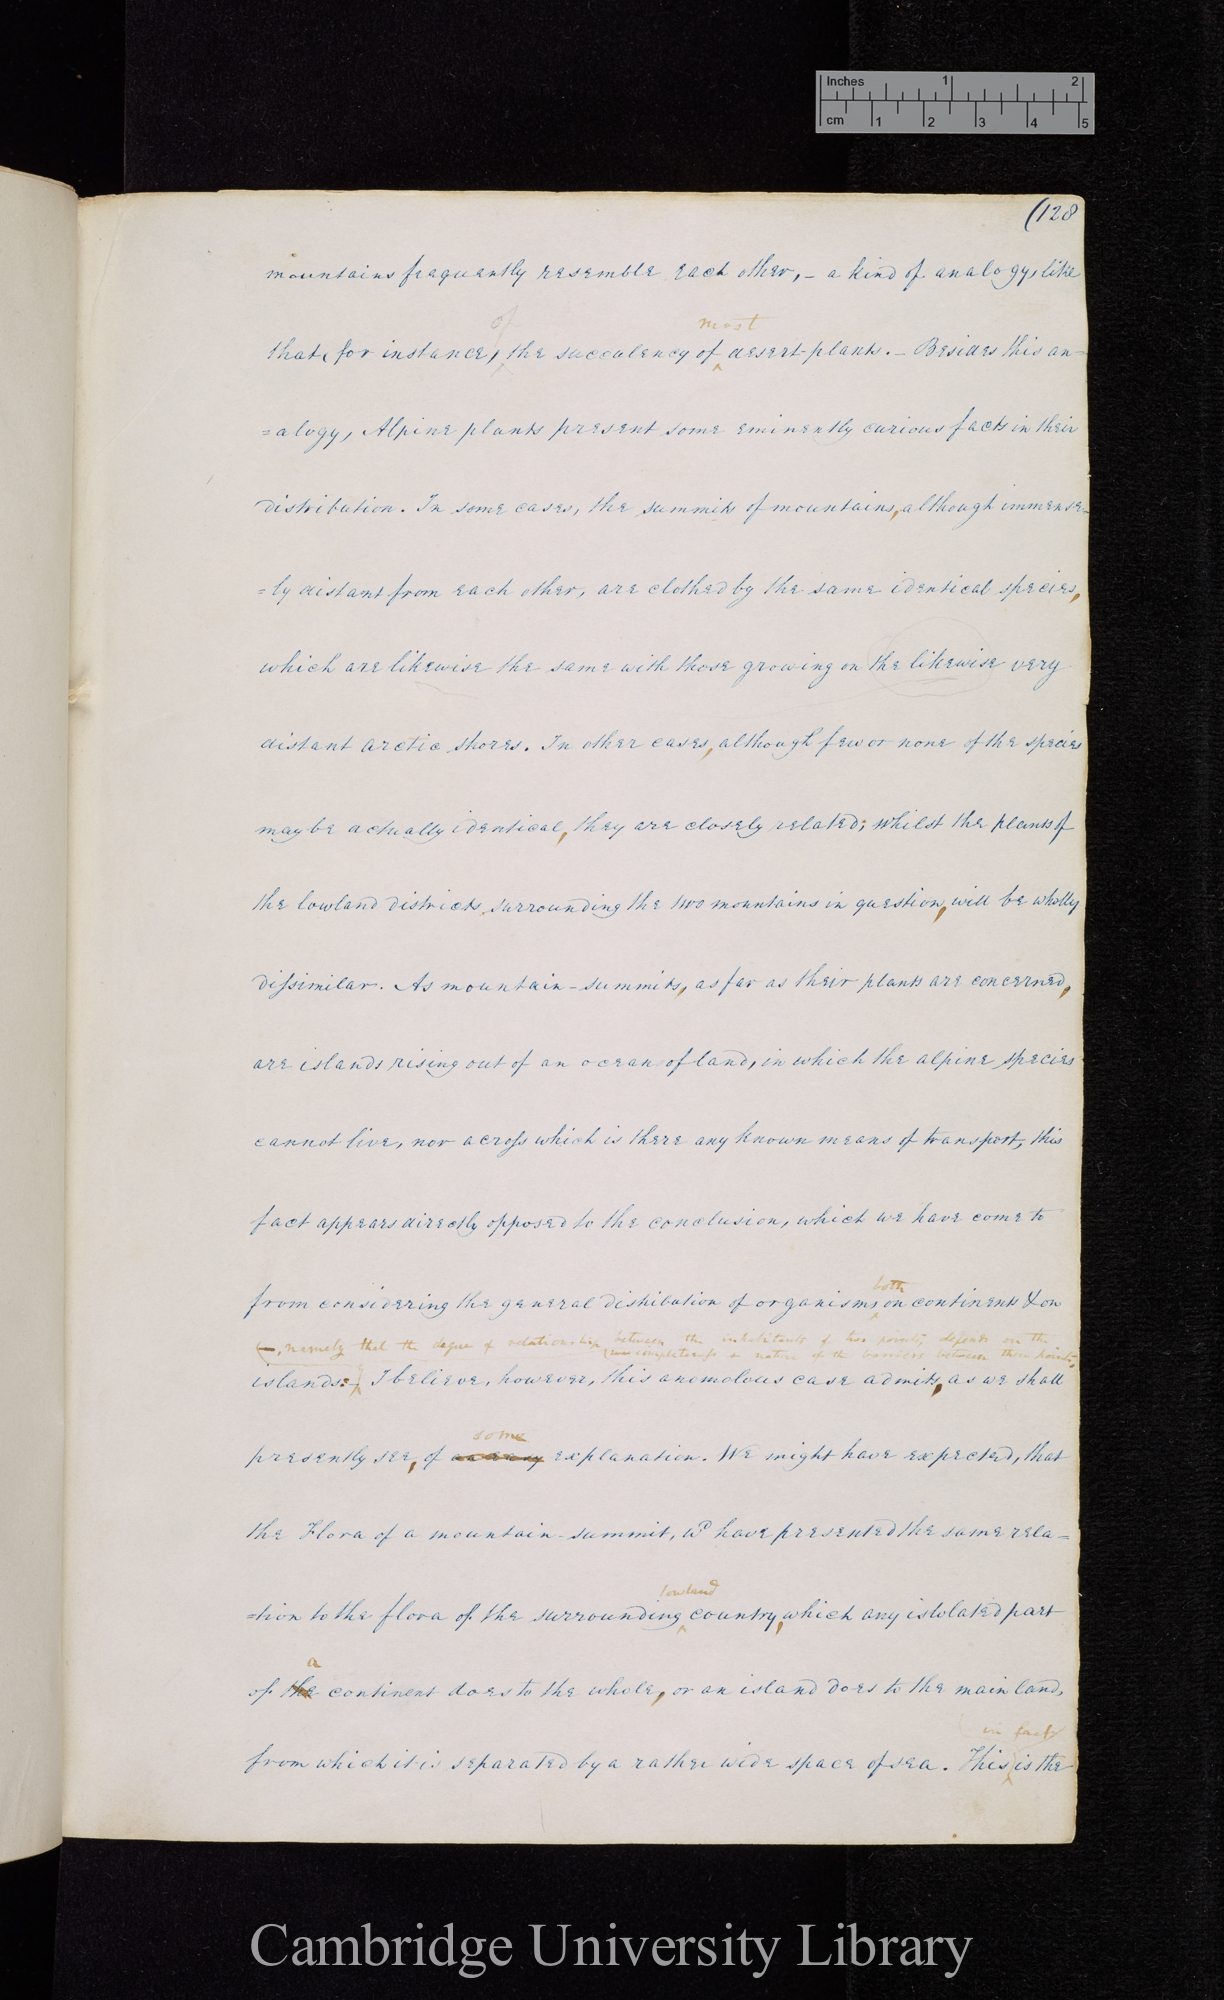 Inches 1 2
cm 1 2 3 4 5
(128
mountains frequently resemble each other, – a kind of analogy, like
of most
that, for instance, the succulency of desert-plants. – Besides this an=
=alogy, Alpine plants present some eminently curious facts in their
distribution. In some cases, the summits of mountains, although immense=
=ly distant from each other, are clothed by the same identical species,
which are likewise the same with those growing on the likewise very
distant arctic shores. In other cases, although few or none of the species
may be actually identical, they are closely related; whilst the plants of
the lowland districts surrounding the two mountains in question, will be wholly
dissimilar. As mountain-summits, as far as their plants are concerned,
are islands rising out of an ocean of land, in which the alpine species
cannot live, nor across which is there any known means of transport, this
fact appears directly opposed to the conclusion, which we have come to
both
from considering the general distribution of organisms on continents & on
, namely that the degree of relationship between the inhabitants of two points, depends on the
completeness & nature of the barriers between those points,
islands: I believe, however, this anomolous case admits, as we shall
some
presently see, of explanation. We might have expected, that
the Flora of a mountain-summit, wd have presented the same rela=
lowland
=tion to the flora of the surrounding country, which any isolated part
a
of the continent does to the whole, or an island does to the main land,
in fact
from which it is separated by a rather wide space of sea. This is the
Cambridge University Library